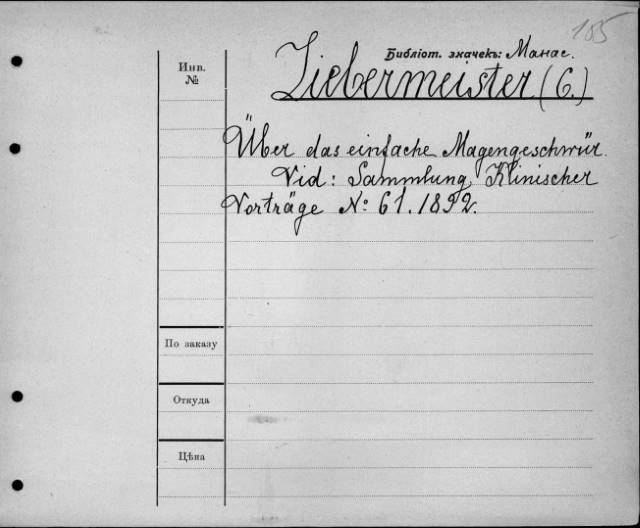 105
Библіот. значекъ: Манас.
Инв.
№
Liebermeister (C.)
Über das einfache Magengeschwür.
Vid: Sammlung Klinischer
Vorträge № 61. 1892.
По заказу
Откуда
Цѣна